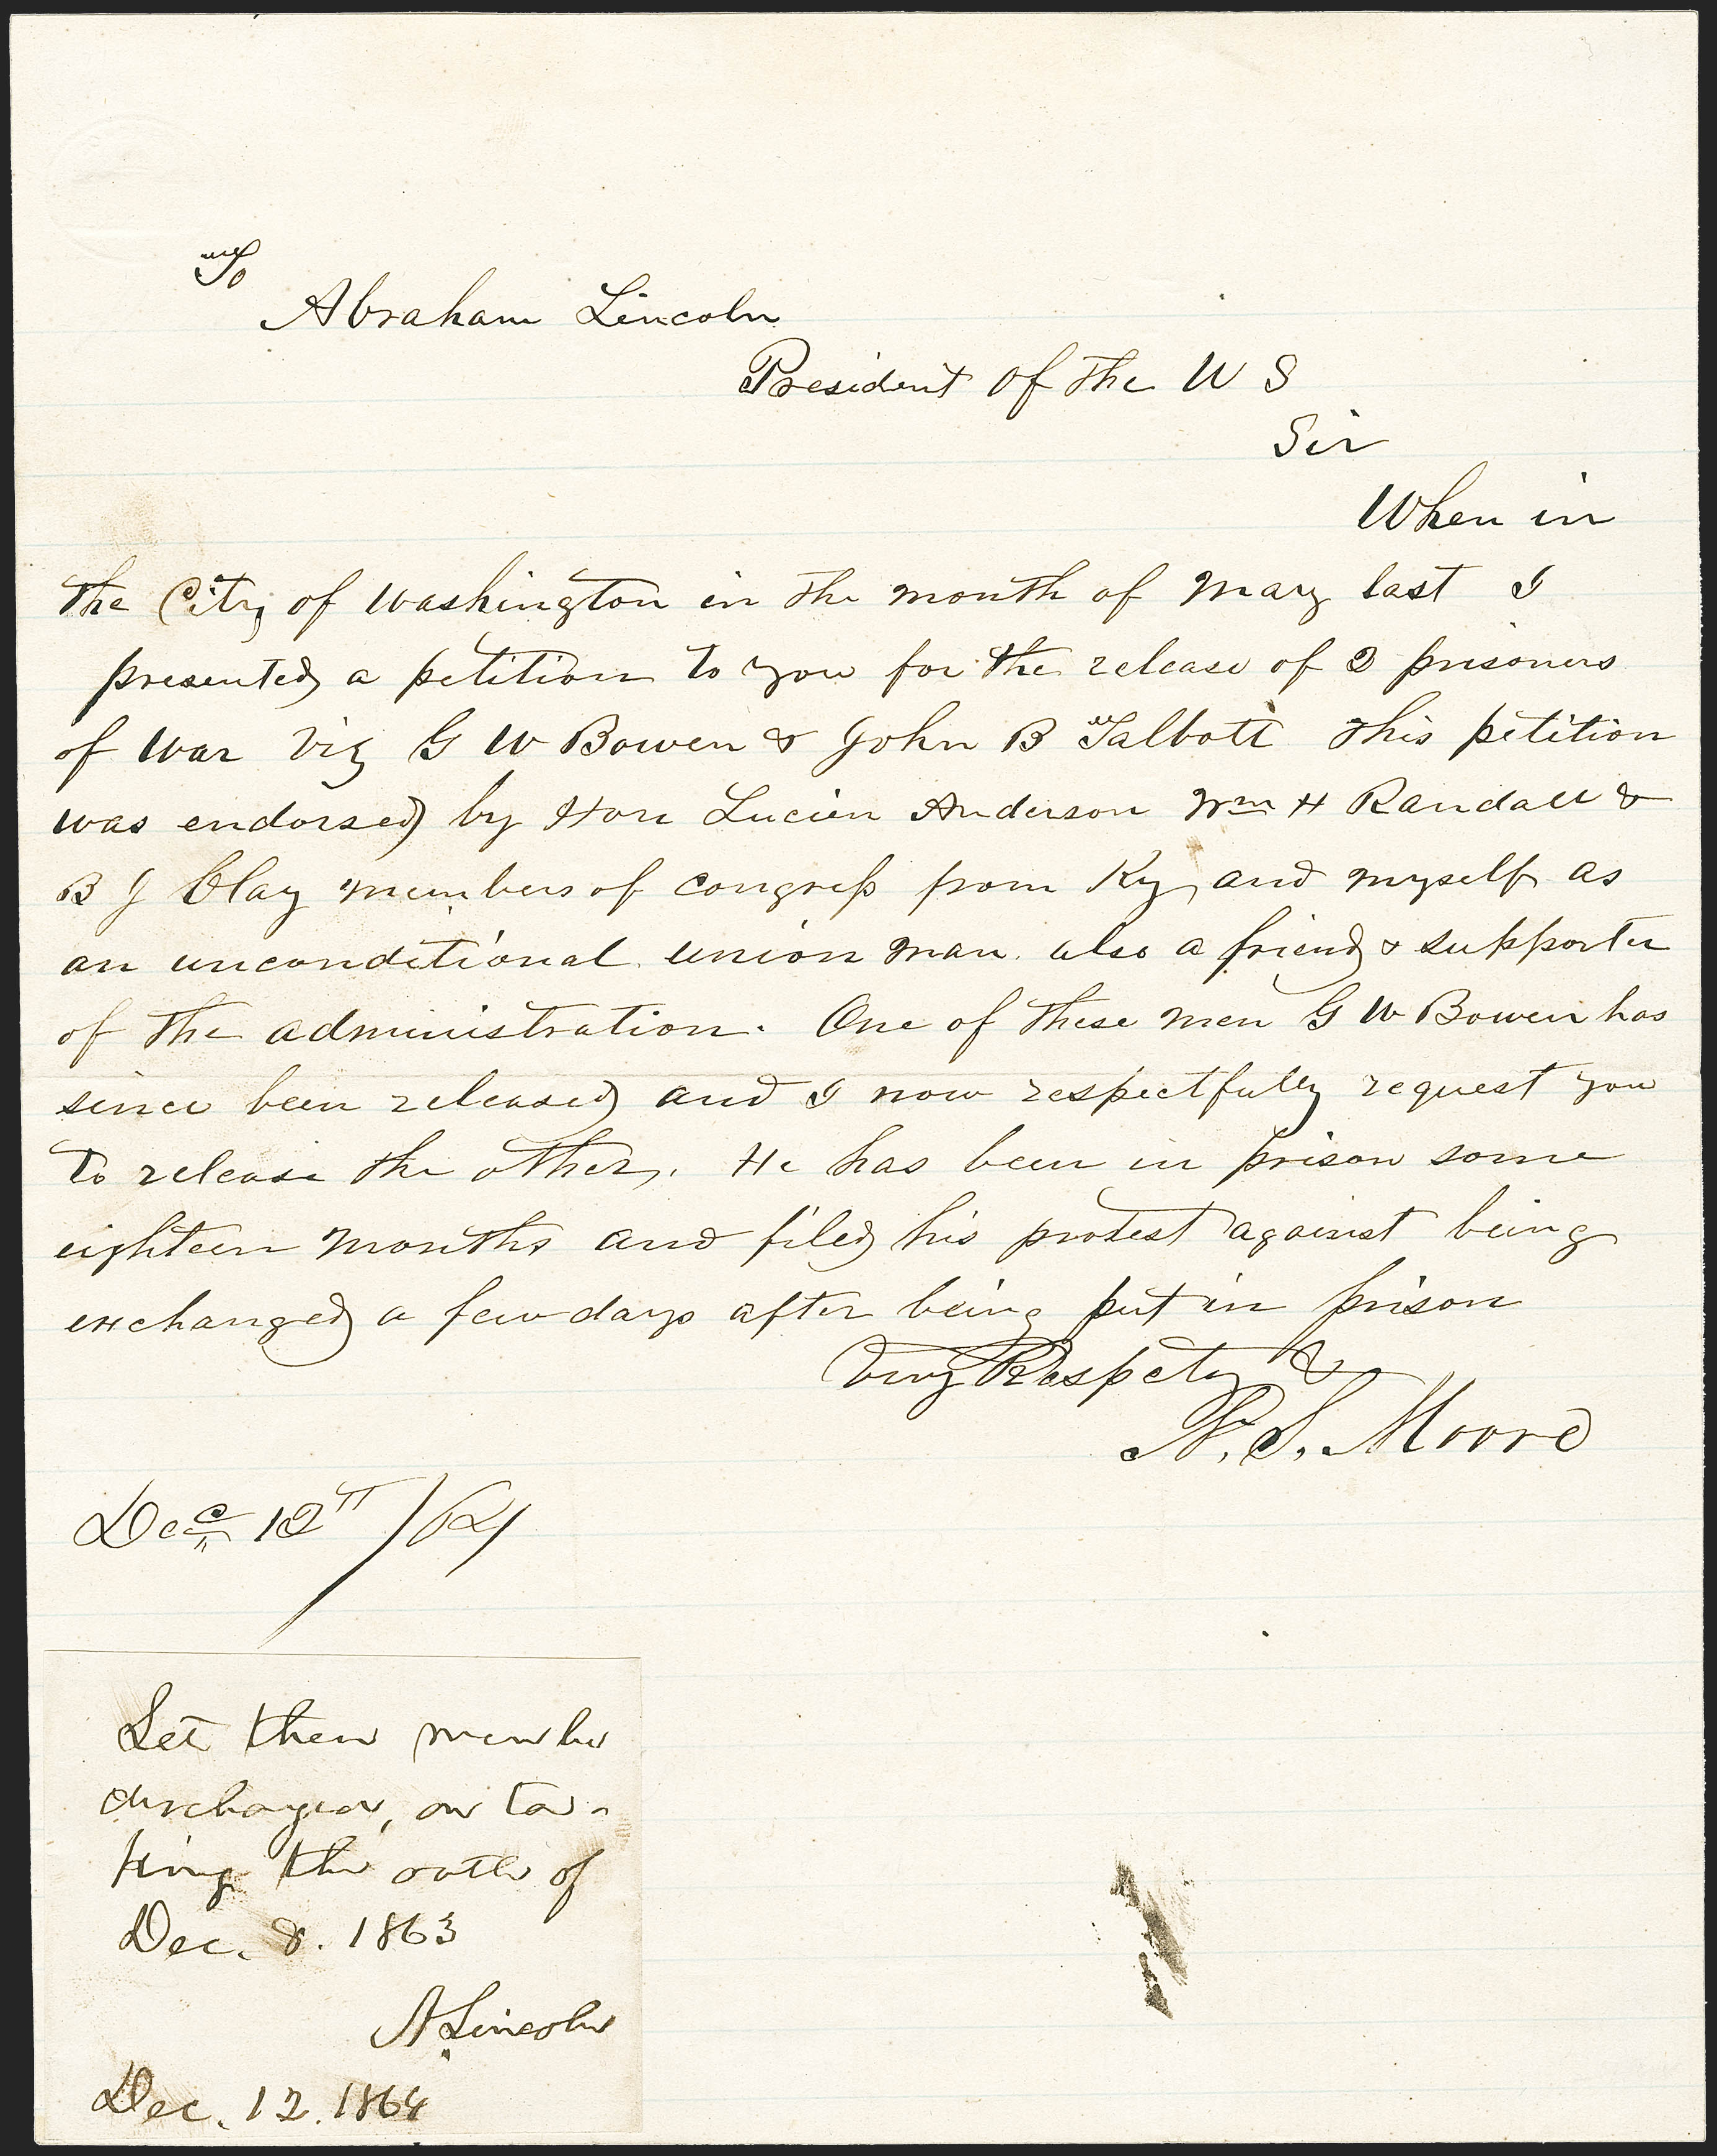 To
Abraham Lincoln
President of the U S
Sir
When in
the City of Washington in the month of May last I
presented a petition to you for the release of 2 prisoners
of War Viz G W Bowen & John B Talbott This petition
was endorsed by Hon Lucien Anderson Wm H Randall &
B J Clay members of congress from Ky, and myself as
an unconditional union man also a friend & supporter
of the administration. One of these men G W Bowen has
since been released and I now respectfully request you
to release the other. He has been in prison some
eighteen months and filed his protest against being
exchanged a few days after being put in prison
Very Respcty &
N. S. Moore
Dec 12th /64
Let these men be
discharged, on ta-
king the oath of
Dec. 8. 1863
A Lincoln
Dec. 12. 1864